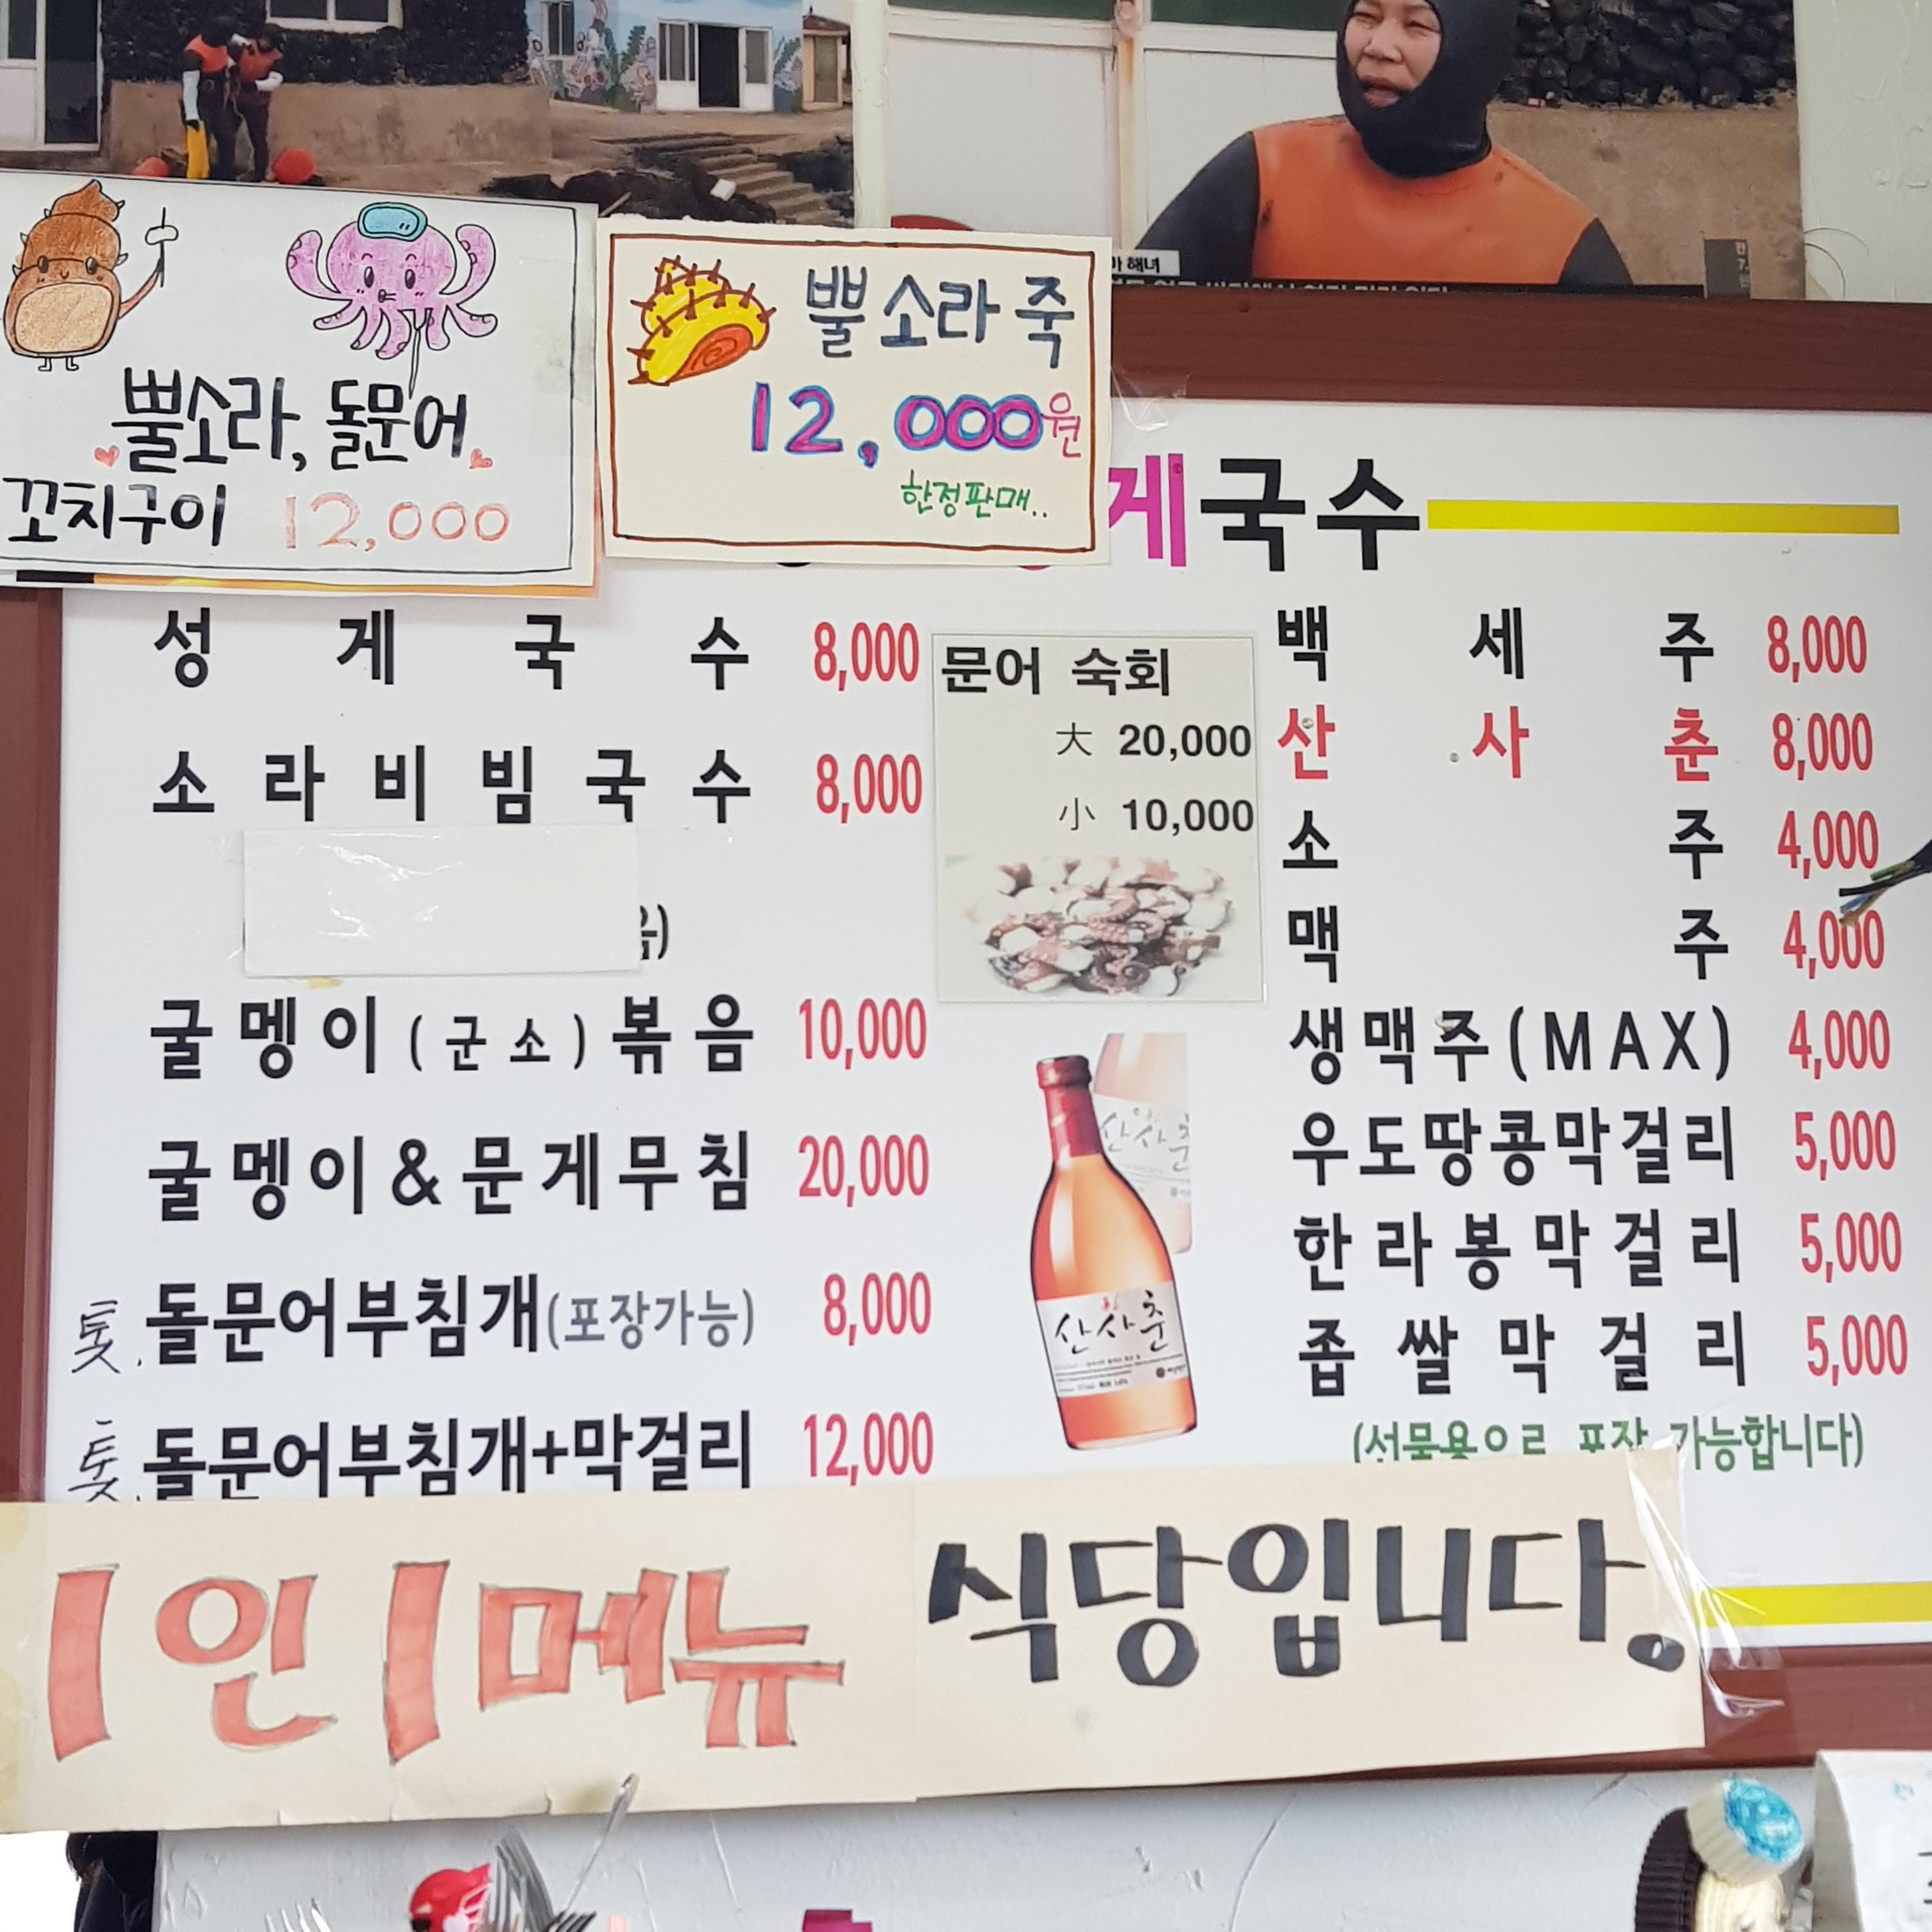 마 해녀
뿔소라, 돌문어
꼬치구이 12,000
뿔소라 죽
12,000원
한정판매..
게국수
성게국수 8,000
소라비빔국수 8,000
음)
굴멩이(군소)볶음 10,000
굴멩이&문게무침 20,000
톳. 돌문어부침개(포장가능) 8,000
톳. 돌문어부침개+막걸리 12,000
문어 숙회
大 20,000
小 10,000
산사춘
산사춘
백세주 8,000
산사춘 8,000
소주 4,000
맥주 4,000
생맥주(MAX) 4,000
우도땅콩막걸리 5,000
한라봉막걸리 5,000
좁쌀막걸리 5,000
(선물용으로 포장 가능합니다)
1인 1메뉴 식당입니다.